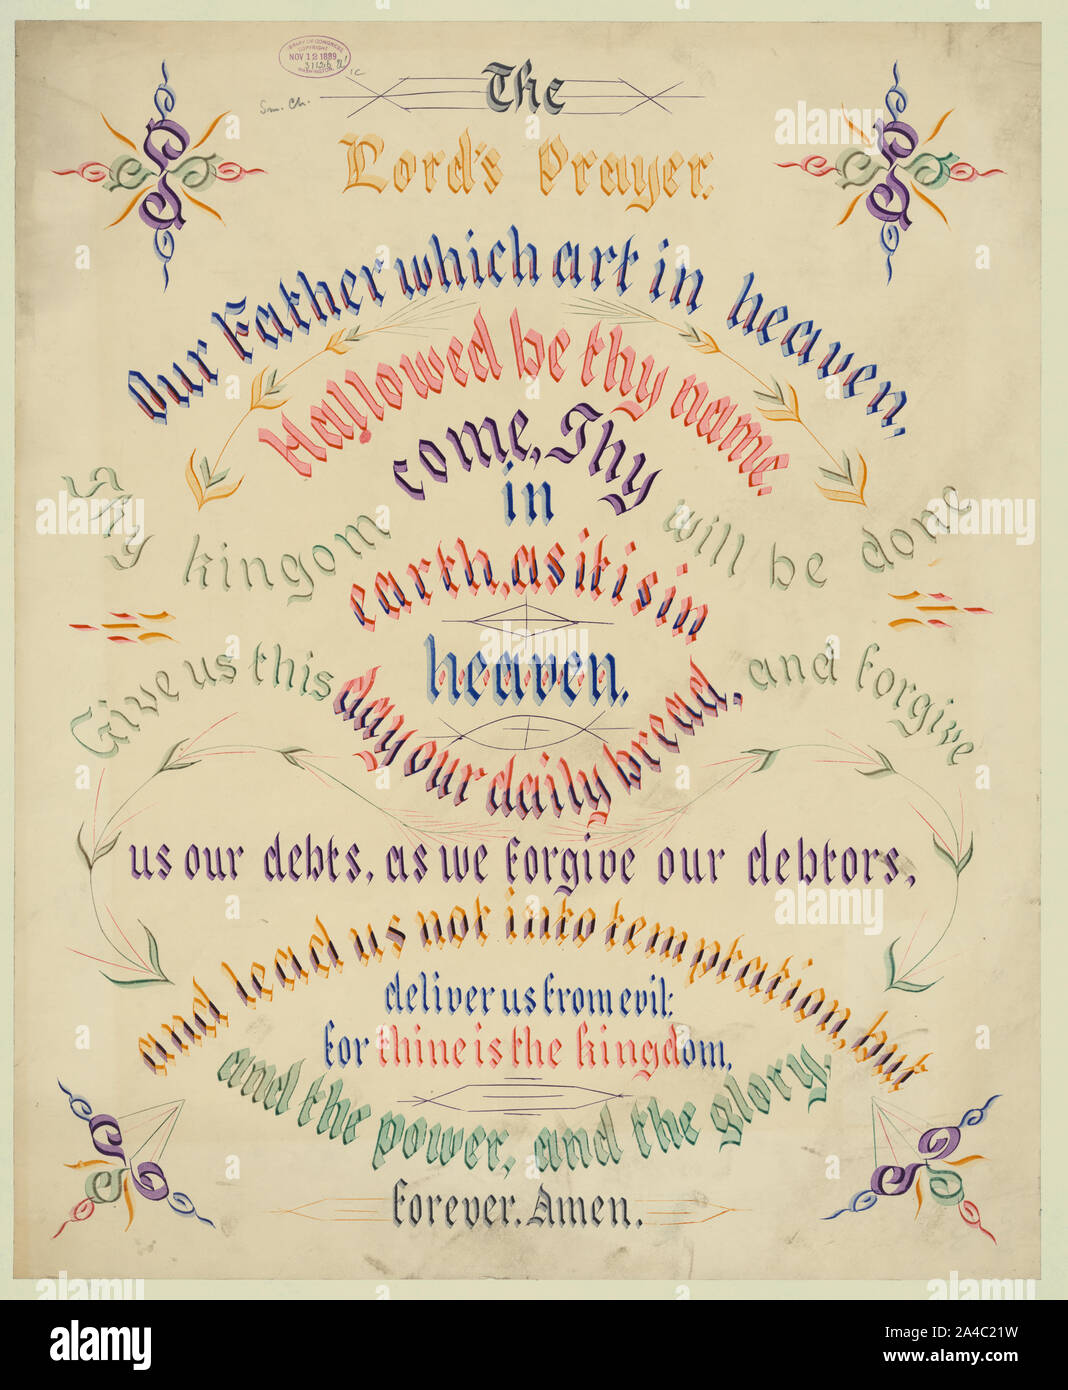 LIBRARY OF CONGRESS
COPYRIGHT
NOV 12 1889
WASHINGTON
Sm. Ch.
The
Lord's Prayer.
Our Father which art in heaven,
Hallowed be thy name.
Thy kingom come, Thy will be done
in
earth, as it is in
heaven.
Give us this day our daily bread, and forgive
us our debts, as we forgive our debtors,
and lead us not into temptation, but
deliver us from evil:
for thine is the kingdom,
and the power, and the glory,
forever. Amen.
alamy
alamy
Image ID: 2A4C21W
www.alamy.com